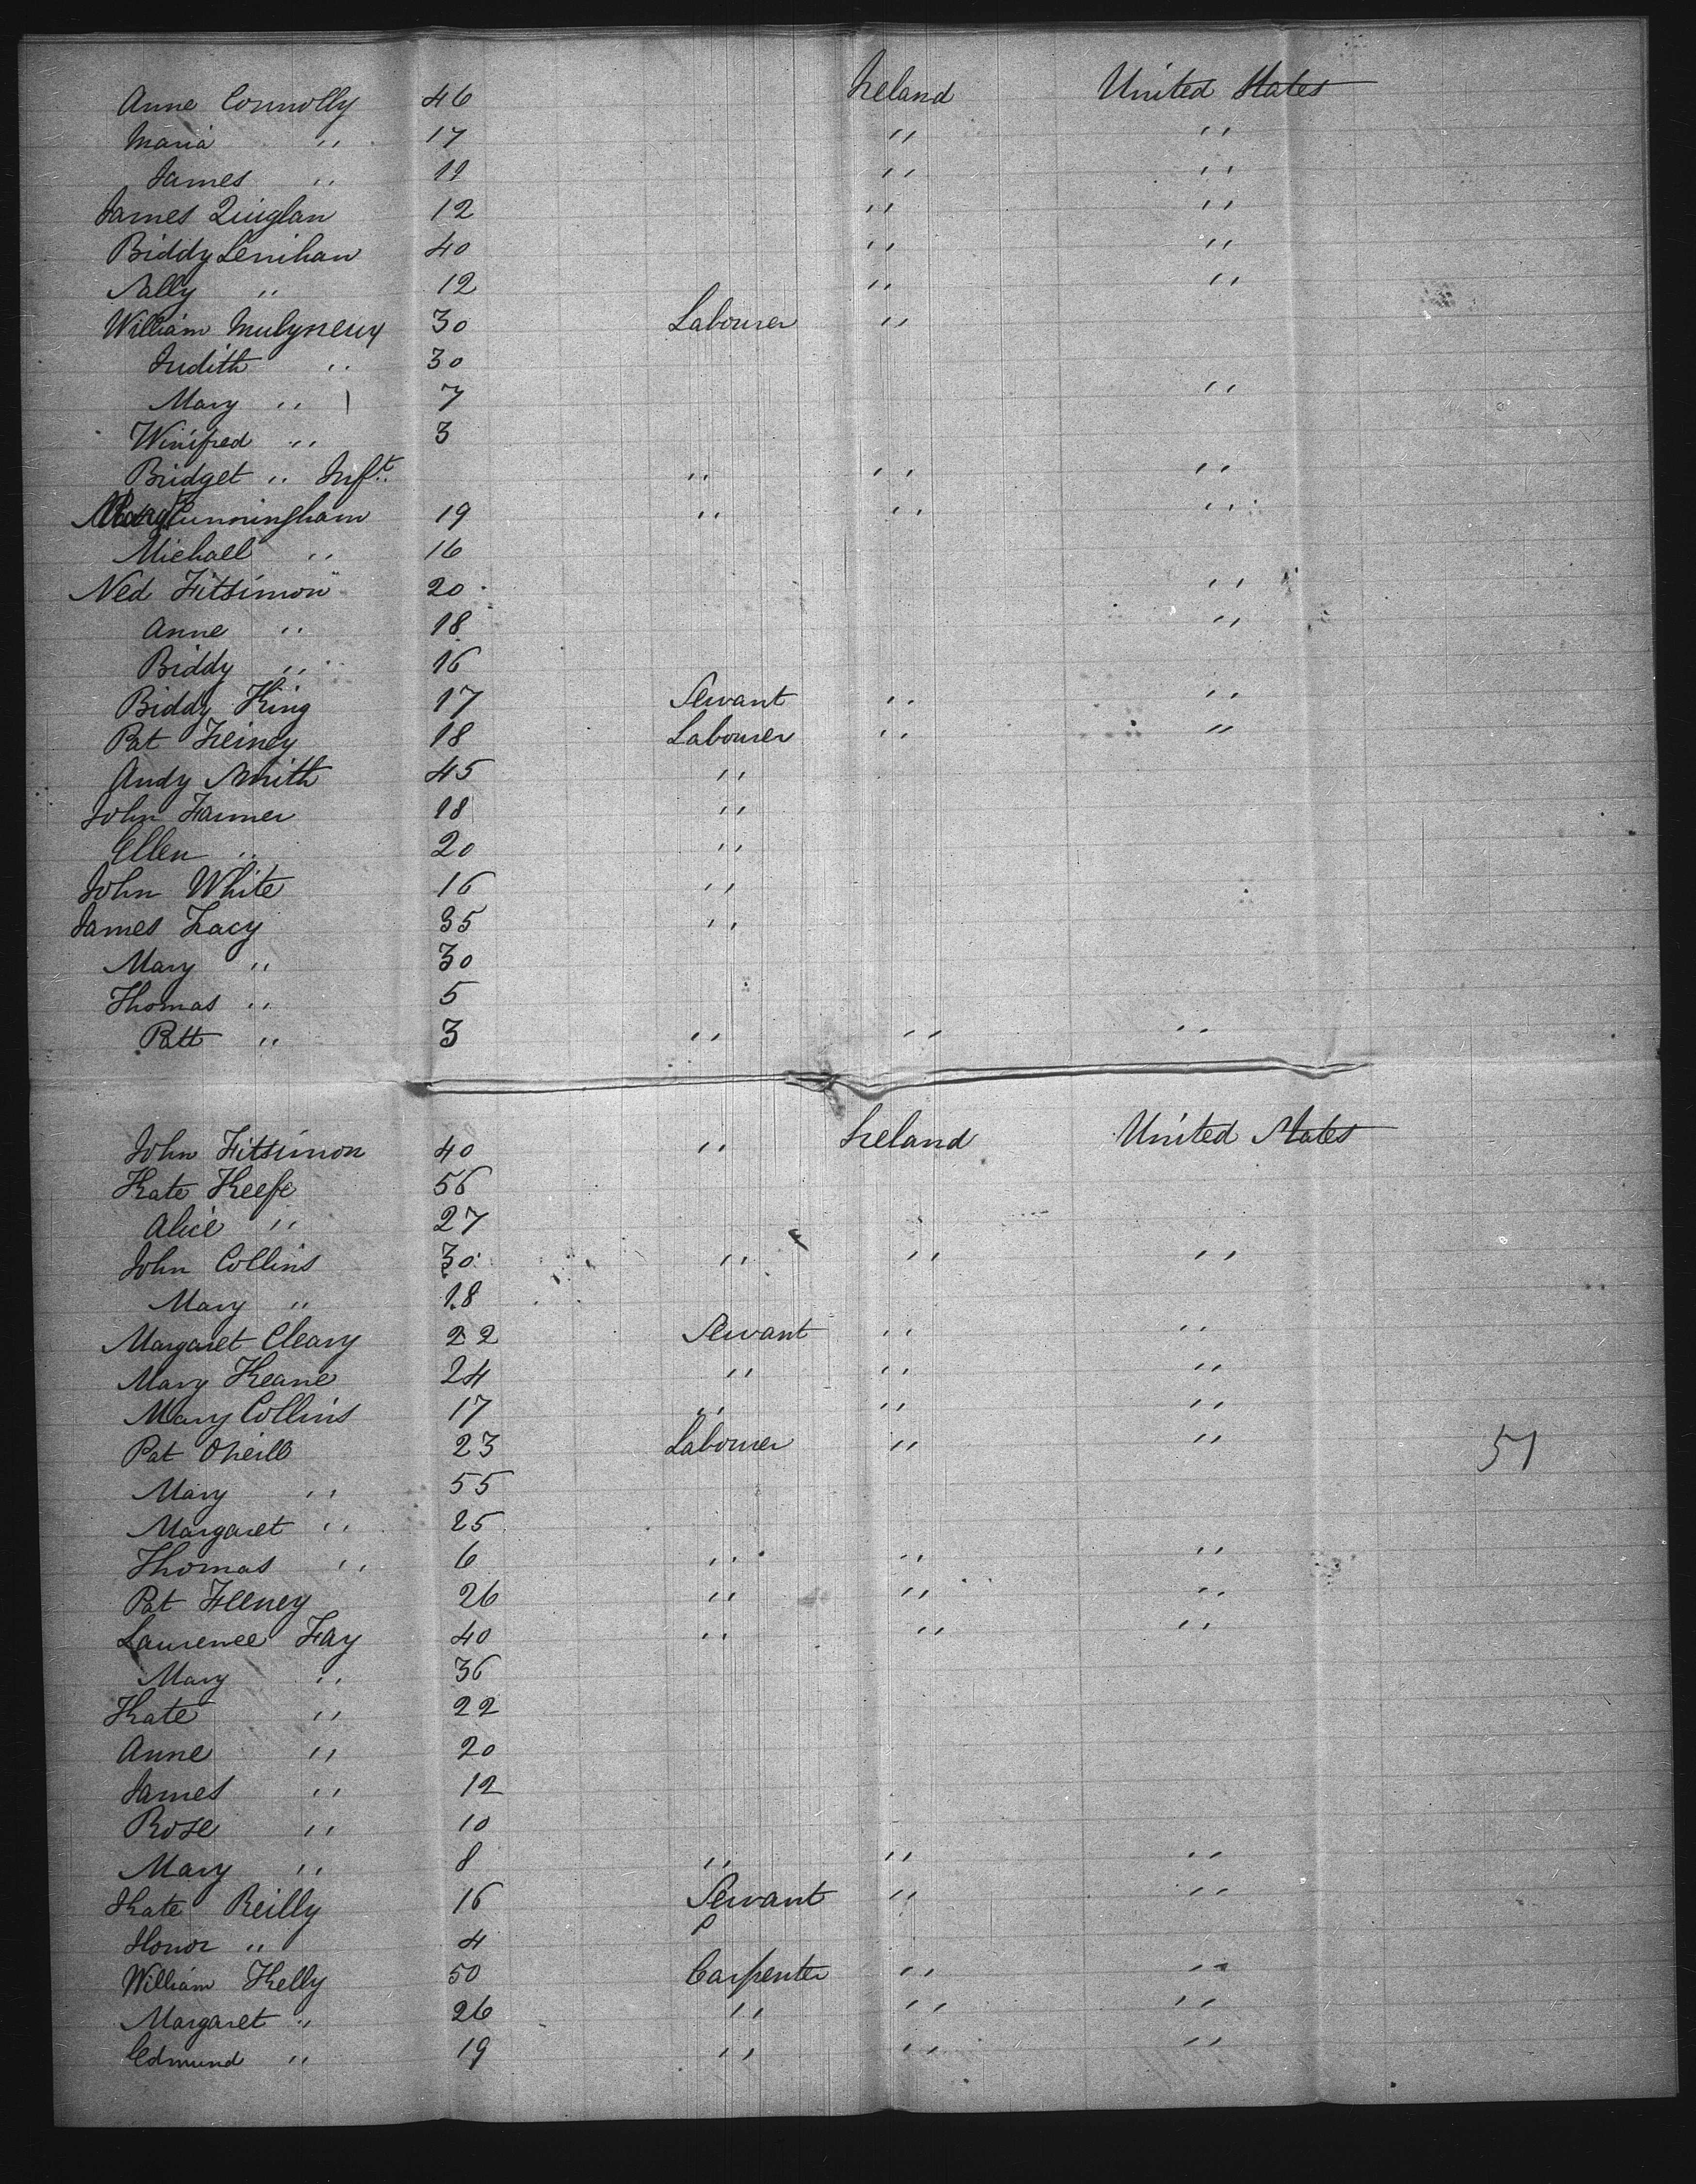 Anne Connolly 46 Ireland United States
Maria " 17 " "
James " 11 " "
James Quiglan 12 " "
Biddy Lenihan 40 " "
Sally " 12 " "
William Mulyneux 30 Labourer "
Judith " 30
Mary " 7 "
Winifred " 3
Bridget " Inft. " " "
Cunningham 19 " " "
Michael " 16
Ned Fitsimon 20 "
Anne " 18 "
Biddy " 16
Biddy King 17 Servant " "
Pat Feiney 18 Labourer " "
Andy Smith 45 "
John Farmer 18 "
Ellen " 20 "
John White 16 "
James Lacy 35 "
Mary " 30
Thomas " 5
Patt " 3 " " "
John Fitsimon 40 " Ireland United States
Kate Keefe 56
Alice " 27
John Collins 30 " " "
Mary " 18
Margaret Cleary 22 Servant " "
Mary Keane 24 " " "
Mary Collins 17 " " "
Pat Oneill 23 Labourer " " 51
Mary " 55
Margaret " 25
Thomas " 6 " " "
Pat Feeney 26 " " "
Laurence Fay 40 " " "
Mary " 36
Kate " 22
Anne " 20
James " 12
Rose " 10
Mary " 8 " " "
Kate Reilly 16 Servant " "
Honor " 4
William Kelly 50 Carpenter " "
Margaret " 26 " " "
Edmund " 19 " " "